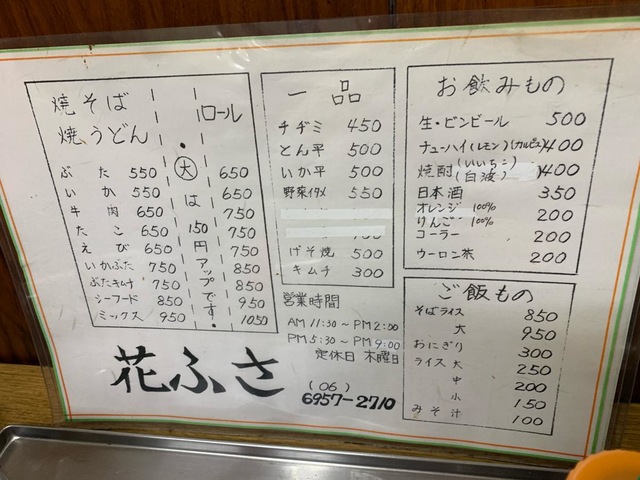 焼そば
焼うどん
ロール
・大は150円アップです・
ぶた 550 650
いか 550 650
牛肉 650 750
たこ 650 750
えび 650 750
いかぶた 750 850
ぶたキムチ 750 850
シーフード 850 950
ミックス 950 1050
一品
チヂミ 450
とん平 500
いか平 500
野菜イタメ 550
げそ焼 500
キムチ 300
営業時間
AM 11:30～PM 2:00
PM 5:30～PM 9:00
定休日 木曜日
お飲みもの
生・ビンビール 500
チューハイ(レモン)(カルピス) 400
焼酎(いいちこ)(白波) 400
日本酒 350
オレンジ 100%
りんご 100% 200
コーラー 200
ウーロン茶 200
ご飯もの
そばライス 850
大 950
おにぎり 300
ライス 大 250
中 200
小 150
みそ汁 100
花ふさ
(06)
6957-2710